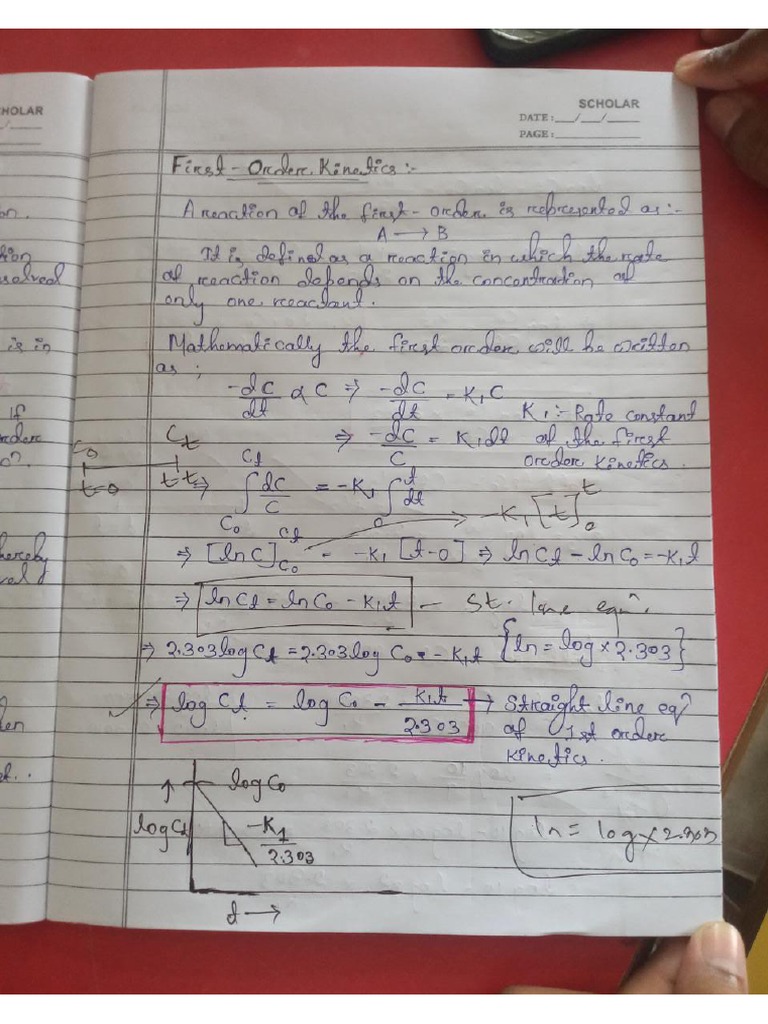 HOLAR
SCHOLAR
DATE:__/__/__
PAGE:________
First-Order Kinetics:-
A reaction of the first-order is represented as:-
A → B
It is defined as a reaction in which the rate
of reaction depends on the concentration of
only one reactant.
Mathematically the first order will be written
as;
-dC/dt ∝ C ⇒ -dC/dt = K₁C
K₁:- Rate constant
of the first
order kinetics.
⇒ -dC/C = K₁dt
C₀ Ct
t=0 t=t
⇒ ∫C₀^Ct dC/C = -K₁ ∫₀^t dt
-K₁[t]₀^t
⇒ [lnC]C₀^Ct = -K₁[t-0] ⇒ lnCt - lnC₀ = -K₁t
⇒ lnCt = lnC₀ - K₁t — St. line eqⁿ.
⇒ 2.303logCt = 2.303logC₀ - K₁t {ln = log×2.303}
⇒ logCt = logC₀ - K₁t/2.303 → Straight line eqⁿ
of 1st order
kinetics.
logC₀
logCt
-K₁/2.303
t →
ln = log×2.303
on.
tion
solved
is in
If
order
o?
hereby
ral
den
st..